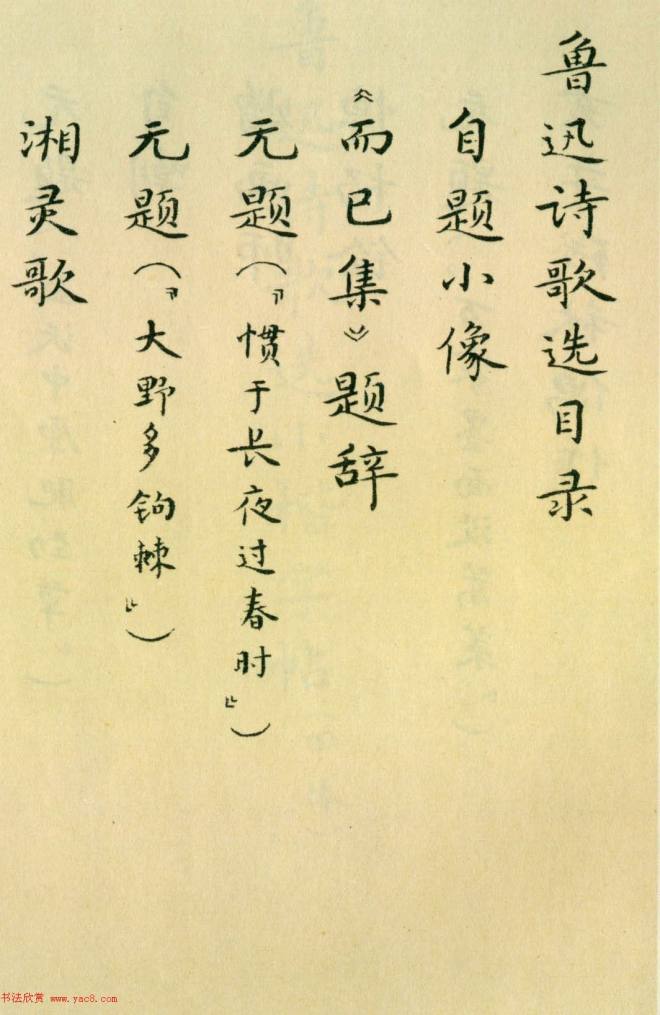 鲁迅诗歌选目录
自题小像
《而已集》题辞
无题（『惯于长夜过春时』）
无题（『大野多钩棘』）
湘灵歌
书法欣赏 www.yac8.com